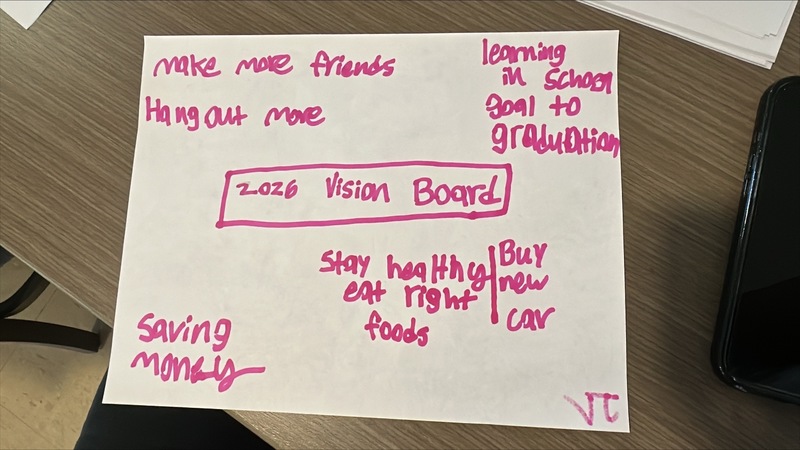 make more friends
Hang out more
learning
in school
goal to
graduation
2026 Vision Board
stay healthy
eat right
foods
Buy
new
car
saving
money